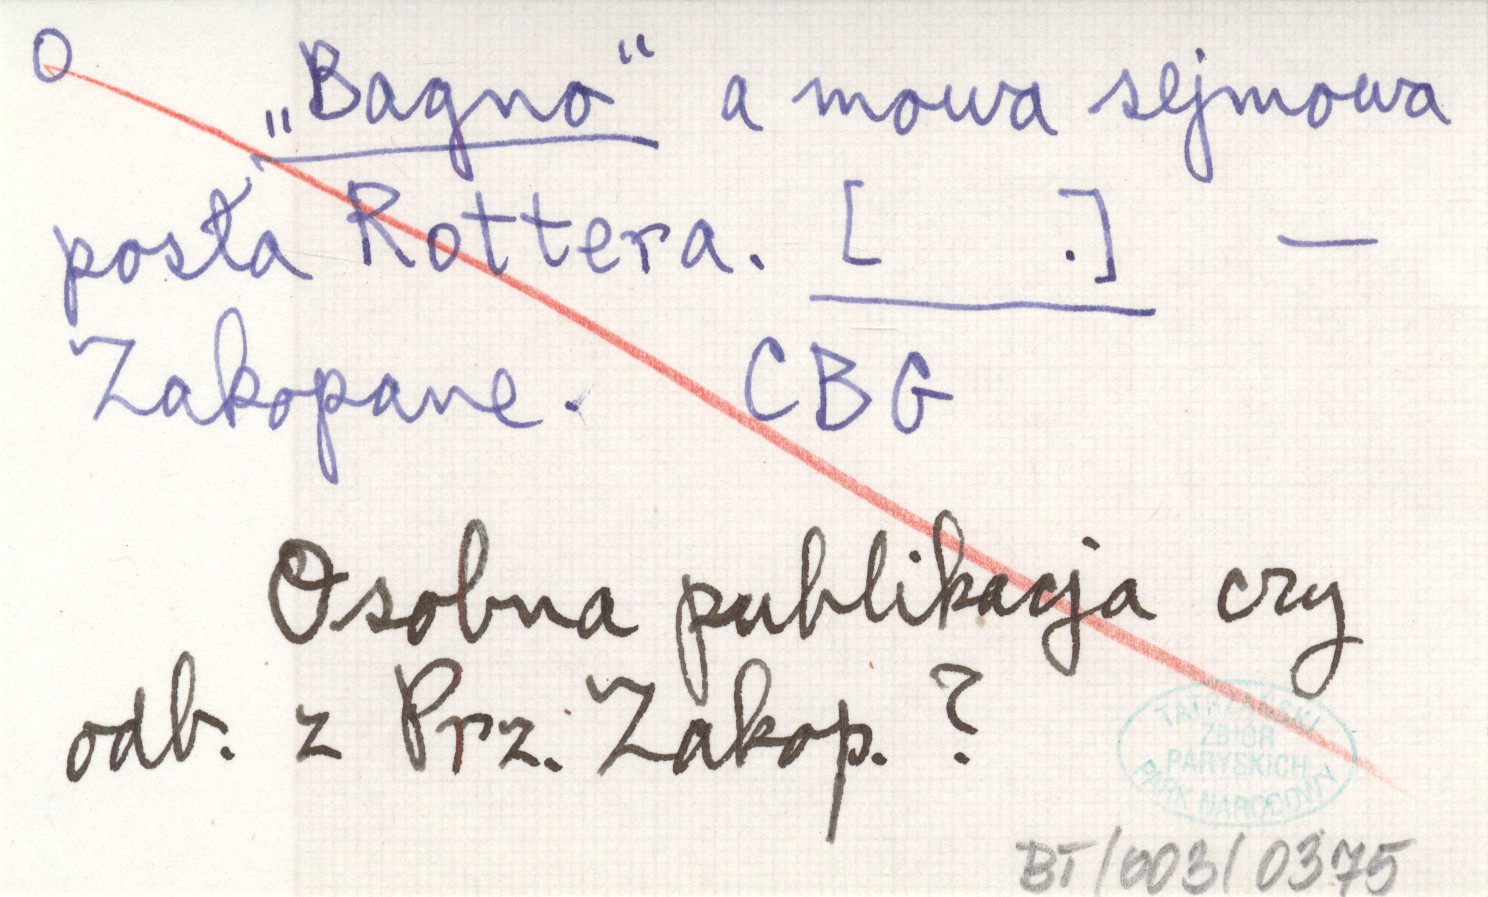 O
„Bagno“ a mowa sejmowa
posła Rottera. [ .] —
Zakopane. CBG
Osobna publikacja czy
odb. z Prz. Zakop. ?
TATRZAŃSKI
ZBIÓR
PARYSKICH
PARK NARODOWY
BT/003/0375